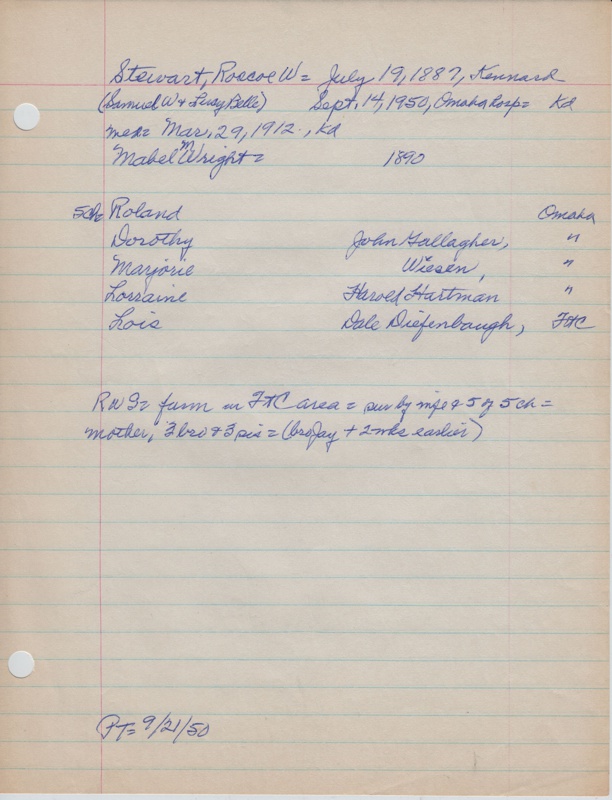 Stewart, Roscoe W = July 19, 1887, Kennard
(Samuel W & Belle) Sept. 14, 1950, Omaha hosp = Kd
med= Mar. 29, 1912., Kd
Mabel M Wright = 1890
5ch= Roland Omaha
Dorothy John Gallagher, "
Marjorie Wiesen, "
Lorraine Harold Hartman "
Lois Dale Diefenbaugh, FtC
RWS= farm in FtC area = sur by wife & 5 of 5 ch =
mother, 3 bro & 3 sis = (bro Jay + 2 wks earlier)
PT= 9/21/50